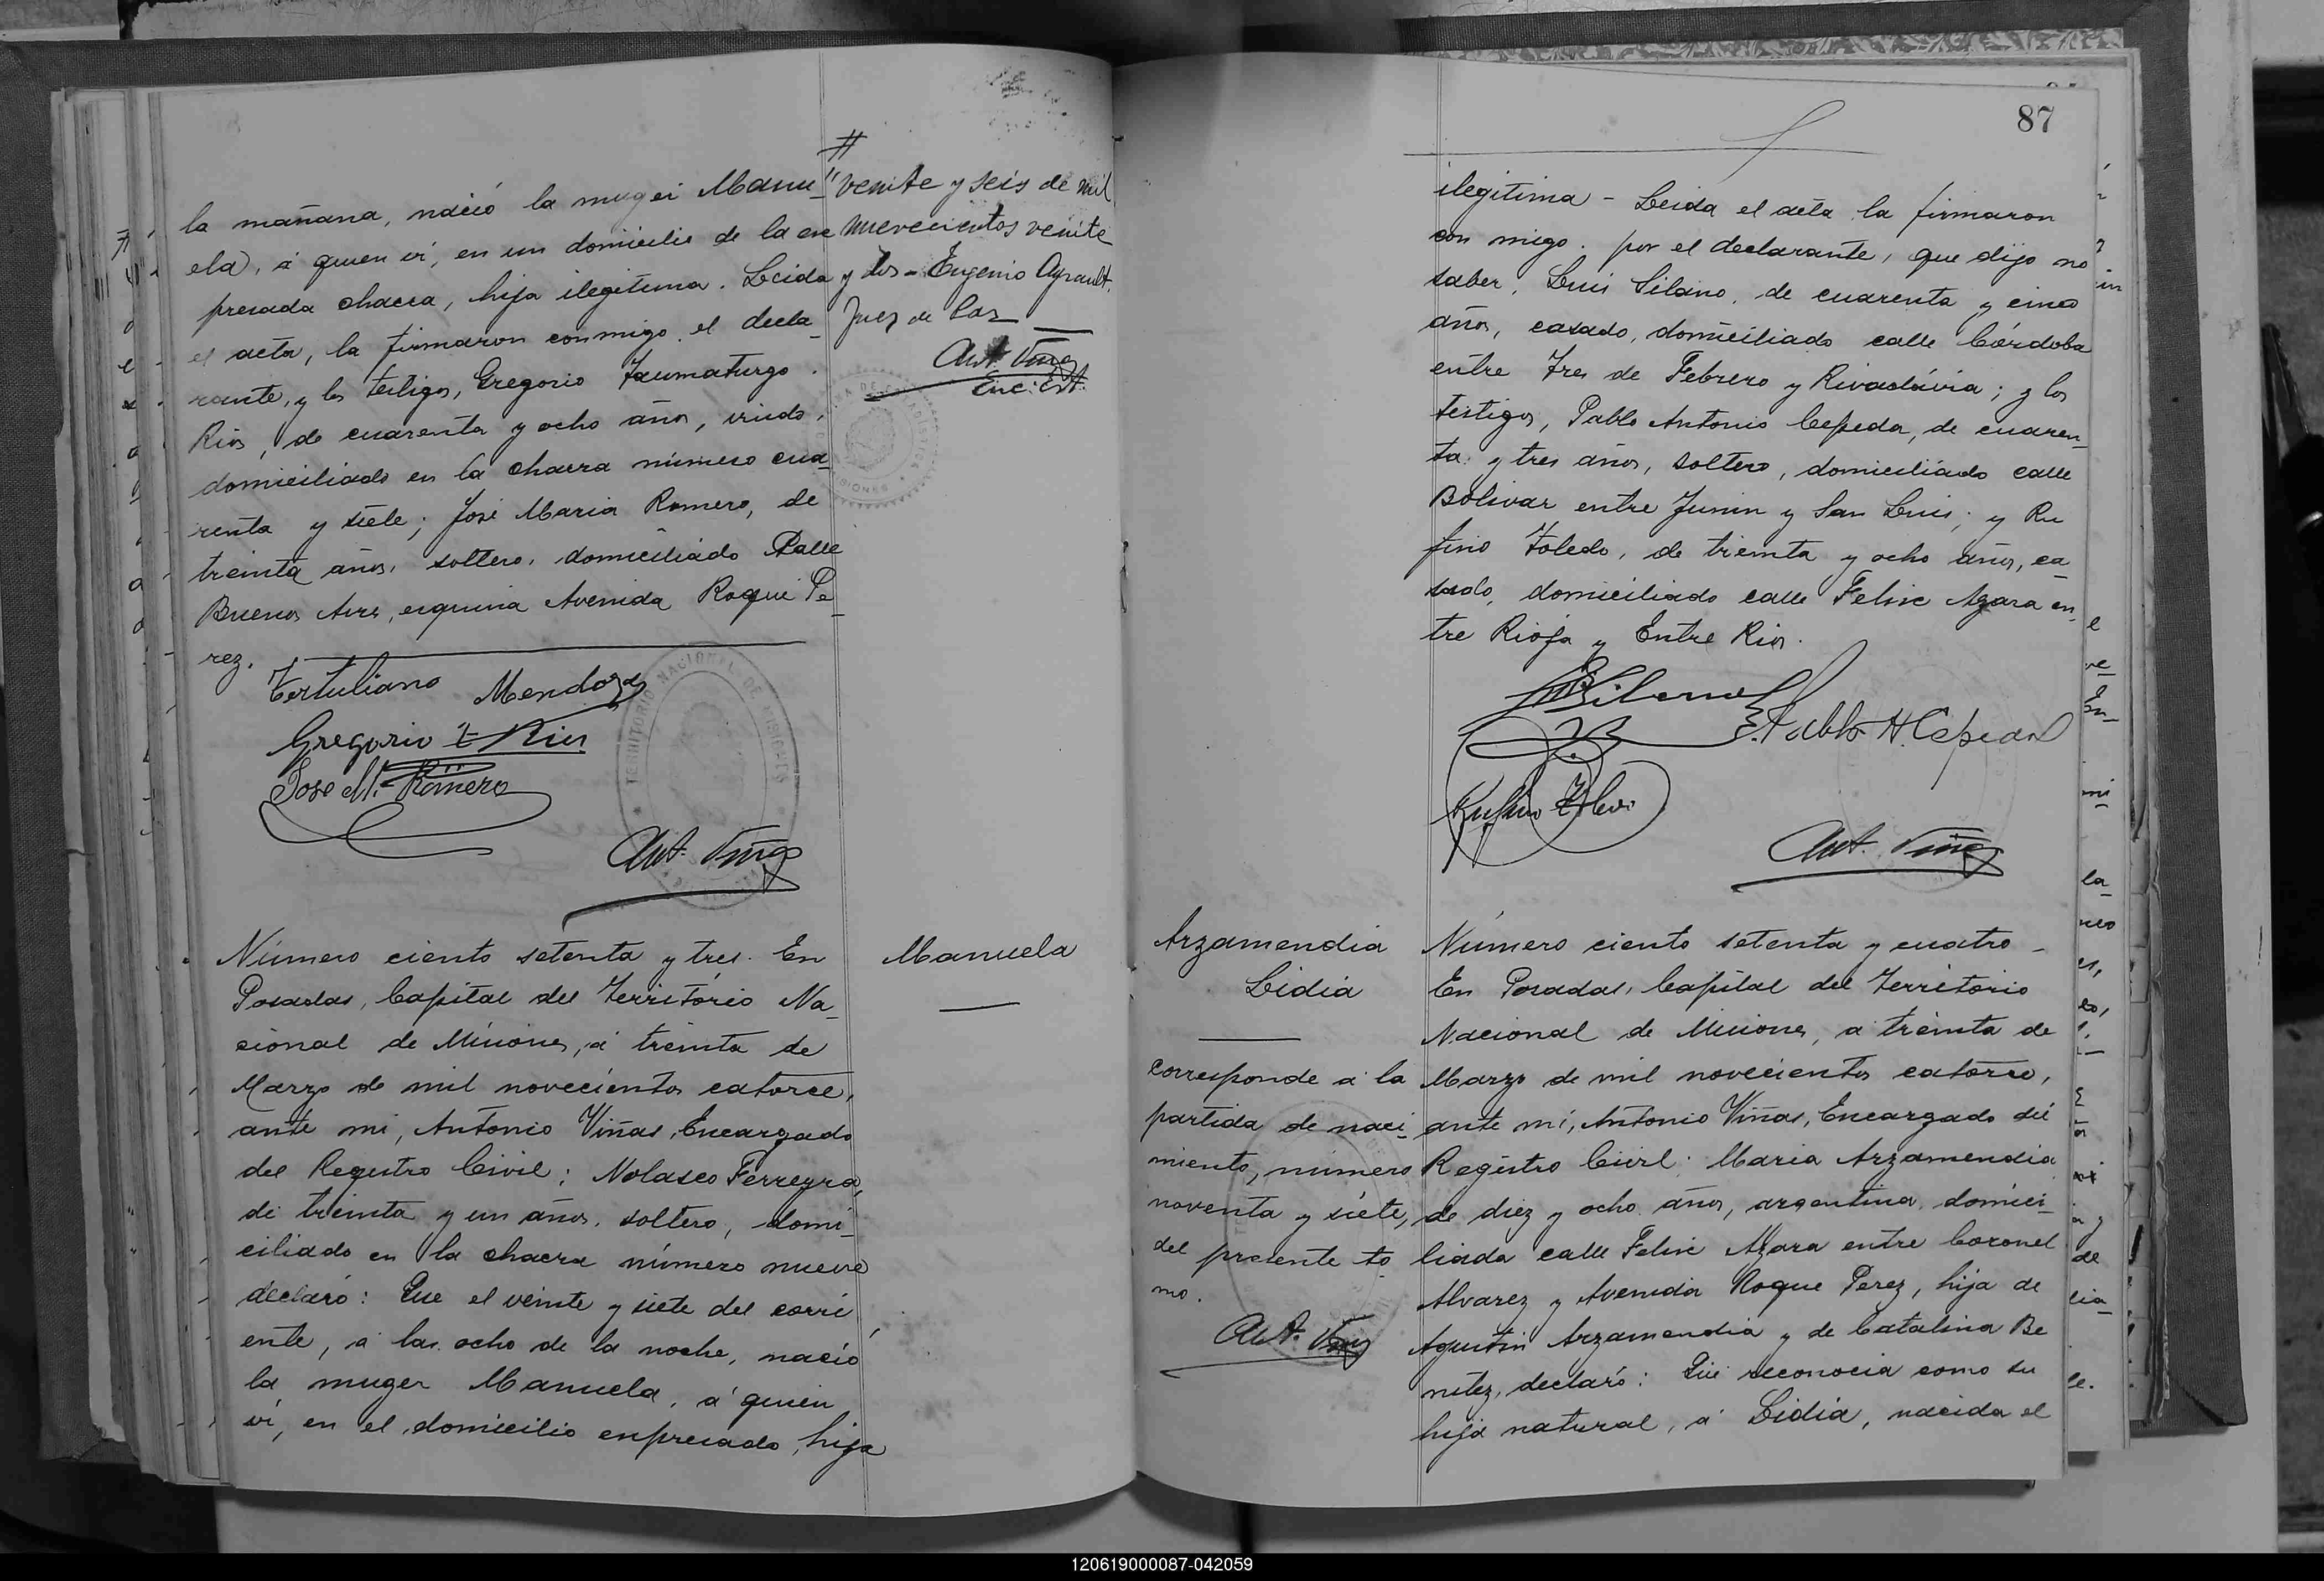 la mañana, nació la muger Manu
ela, á quien ví, en un domicilio de la ex
presada chacra, hija ilegitima. Leida
el acta, la firmaron conmigo el decla
rante, y los testigos, Gregorio Taumaturgo
Rios, de cuarenta y ocho años, viudo,
domiciliado en la chacra número cua
renta y siete; José Maria Romero, de
treinta años, soltero, domiciliado Calle
Buenos Aires, esquina Avenida Roque Pe
rez.
Tertuliano Mendoza
Gregorio T Rios
Jose M.ª Romero
Ant. Viñas
veinte y seis de mil
nuevecientos veinte
y dos - Eugenio Ayrault.
Juez de Paz
Ant. Viñas
Enc. Est.
TERRITORIO NACIONAL DE MISIONES
Número ciento setenta y tres. En
Posadas, Capital del Territorio Na
cional de Misiones, á treinta de
Marzo de mil novecientos catorce,
ante mi, Antonio Viñas, Encargado
del Registro Civil; Nolasco Ferreyra,
de treinta y un años, soltero, domi
ciliado en la chacra número nueve
declaró: Que el veinte y siete del corri
ente, á las ocho de la noche, nació
la muger Manuela, á quien
ví, en el domicilio expresado, hija
Manuela
87
ilegitima - Leida el acta la firmaron
con migo. por el declarante, que dijo no
saber, Luis Silano, de cuarenta y cinco
años, casado, domiciliado calle Córdoba
entre Tres de Febrero y Rivadávia; y los
testigos, Pablo Antonio Cepeda, de cuaren
ta y tres años, soltero, domiciliado calle
Bolivar entre Junin y San Luis; y Ru
fino Toledo, de treinta y ocho años, ca
sado, domiciliado calle Felix Azara en
tre Rioja y Entre Rios.
Pablo A. Cepeda
Rufino Toledo
Ant. Viñas
Arzamendia
Lidia
corresponde á la
partida de naci
miento, número
noventa y siete,
del presente to
mo.
Ant. Viñas
Número ciento setenta y cuatro -
En Posadas, Capital del Territorio
Nacional de Misiones, a treinta de
Marzo de mil novecientos catorce,
ante mí, Antonio Viñas, Encargado del
Registro Civil: Maria Arzamendia
de diez y ocho años, argentina, domici
liada calle Felix Azara entre Coronel
Alvarez y Avenida Roque Perez, hija de
Agustin Arzamendia y de Catalina Be
nitez, declaró: Que reconocia como su
hija natural, á Lidia, nacida el
120619000087-042059